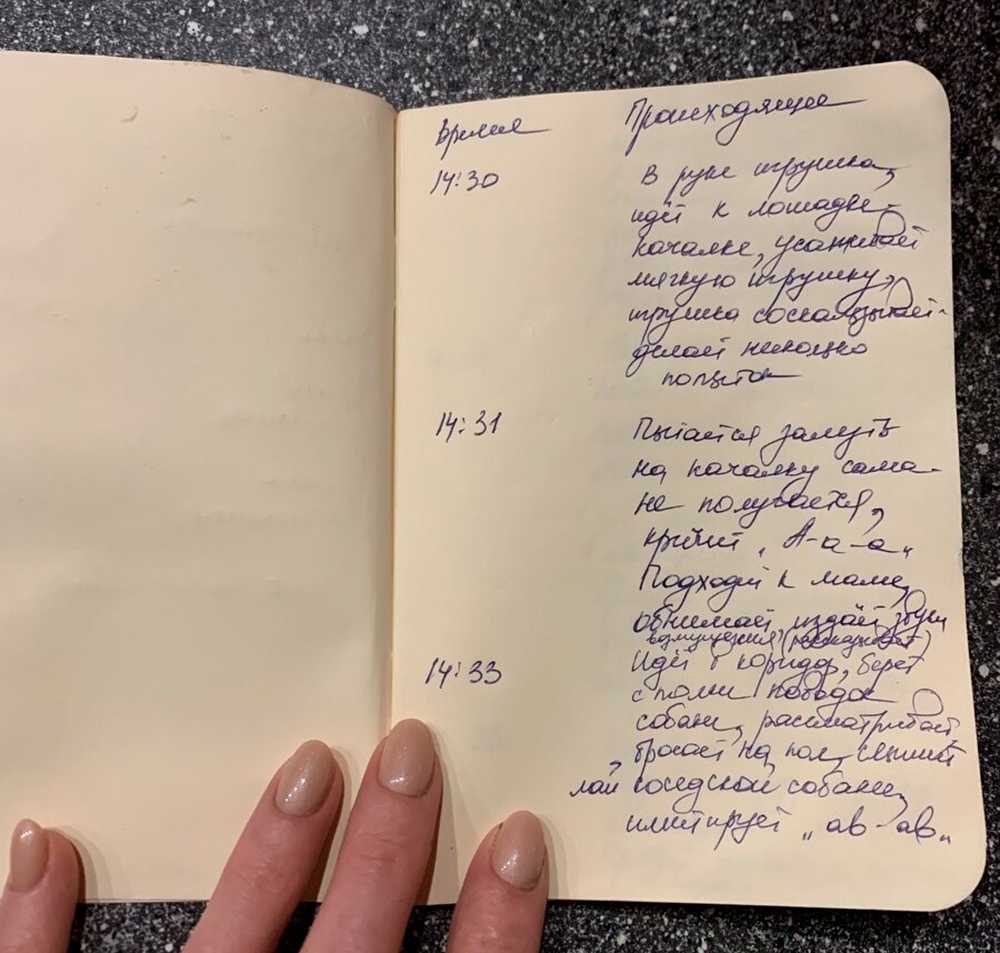 Время Происходящее
14:30 В руке игрушка,
идёт к лошадке-
качалке, усаживает
мягкую игрушку,
игрушка соскальзывает-
делает несколько
попыток
14:31 Пытается залезть
на качалку сама-
не получается,
кричит „А-а-а„
Подходит к маме,
обнимает, издаёт звуки
возмущения (рассказывает)
14:33 Идёт в коридор, берет
с полки поводок
собаки, рассматривает
, бросает на пол, слышит
лай соседской собаки,
имитирует „ав-ав„